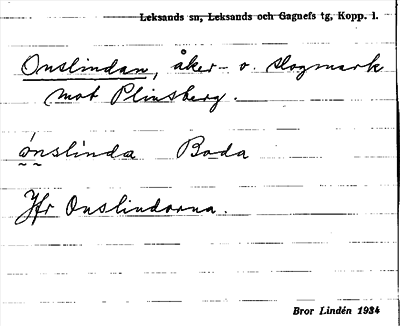 Leksands sn, Leksands och Gagnefs tg, Kopp. l.
Onslindan, åker- o. slogmark
mot Plintsberg.
ònslinda Boda
Jfr Onslindorna.
Bror Lindén 1934